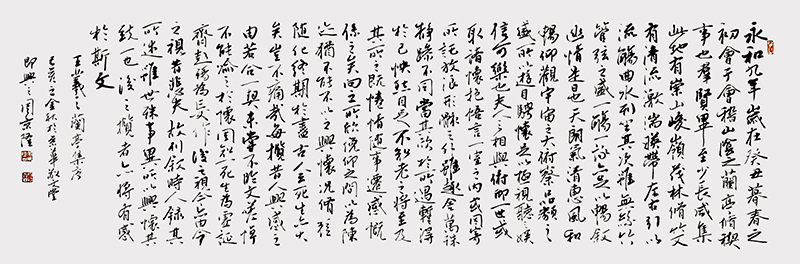 永和九年歲在癸丑暮春之
初會于會稽山陰之蘭亭脩禊
事也群賢畢至少長咸集
此地有崇山峻嶺茂林脩竹又
有清流激湍暎帶左右引以
流觴曲水列坐其次雖無絲竹
管弦之盛一觴一詠亦足以暢敘
幽情是日也天朗氣清惠風和
暢仰觀宇宙之大俯察品類之
盛所以遊目騁懷足以極視聽之娛
信可樂也夫人之相與俯仰一世或
取諸懷抱悟言一室之內或因寄
所託放浪形骸之外雖趣舍萬殊
靜躁不同當其欣於所遇暫得
於己怏然自足不知老之將至及
其所之既惓情隨事遷感慨
係之矣向之所欣俛仰之間以為陳
迹猶不能不以之興懷況脩短
隨化終期於盡古人云死生亦大
矣豈不痛哉每攬昔人興感之
由若合一契未嘗不臨文嗟悼
不能喻之於懷固知一死生為虛誕
齊彭殤為妄作後之視今亦由今
之視昔悲夫故列敘時人錄其
所述雖世殊事異所以興懷其
致一也後之攬者亦將有感
於斯文
王羲之蘭亭集序
己亥之金秋於京華敬文堂
即興之周景隆